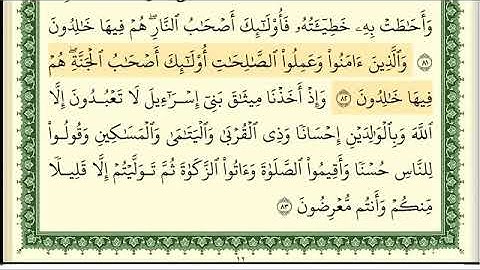 وَأَحَٰطَتْ بِهِۦ خَطِيٓـَٔتُهُۥ فَأُو۟لَٰٓئِكَ أَصْحَٰبُ ٱلنَّارِ ۖ هُمْ فِيهَا خَٰلِدُونَ
٨١ وَٱلَّذِينَ ءَامَنُوا۟ وَعَمِلُوا۟ ٱلصَّٰلِحَٰتِ أُو۟لَٰٓئِكَ أَصْحَٰبُ ٱلْجَنَّةِ ۖ هُمْ
فِيهَا خَٰلِدُونَ ٨٢ وَإِذْ أَخَذْنَا مِيثَٰقَ بَنِىٓ إِسْرَٰٓءِيلَ لَا تَعْبُدُونَ إِلَّا
ٱللَّهَ وَبِٱلْوَٰلِدَيْنِ إِحْسَانًا وَذِى ٱلْقُرْبَىٰ وَٱلْيَتَٰمَىٰ وَٱلْمَسَٰكِينِ وَقُولُوا۟
لِلنَّاسِ حُسْنًا وَأَقِيمُوا۟ ٱلصَّلَوٰةَ وَءَاتُوا۟ ٱلزَّكَوٰةَ ثُمَّ تَوَلَّيْتُمْ إِلَّا قَلِيلًا
مِّنكُمْ وَأَنتُم مُّعْرِضُونَ ٨٣
١٢